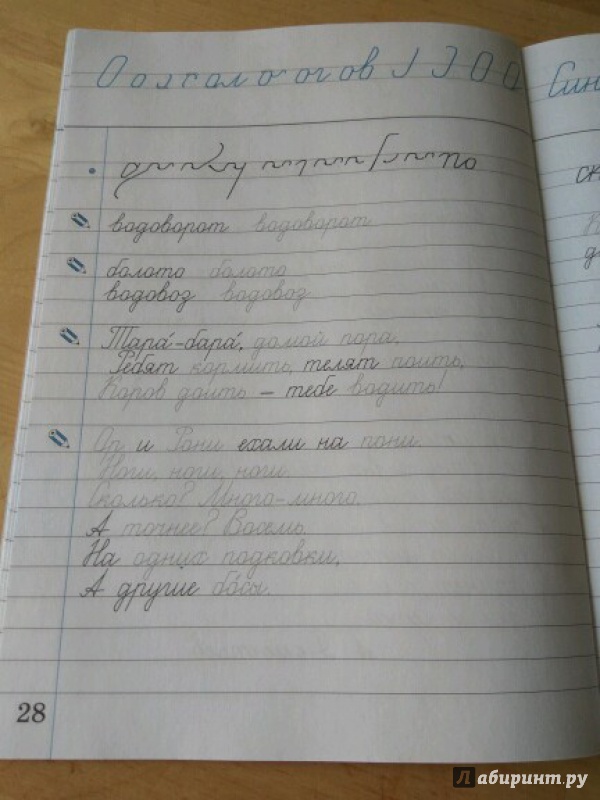 О о л г ол о г о в
водоворот водоворот
болото болото
водовоз водовоз
Тара́-бара́, домой пора,
Ребят кормить, телят поить,
Коров доить – тебе водить!
Ор и Рони ехали на пони.
Ноги, ноги, ноги.
Сколько? Много-много.
А точнее? Восемь.
На одних подковки,
А другие бо́сы.
28
Лабиринт.ру